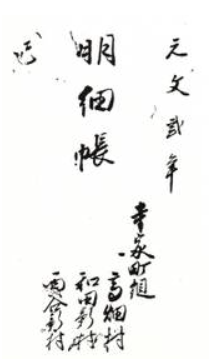 元文弐年
明細帳
寺家町組
高畑村
和田新村
西谷新村